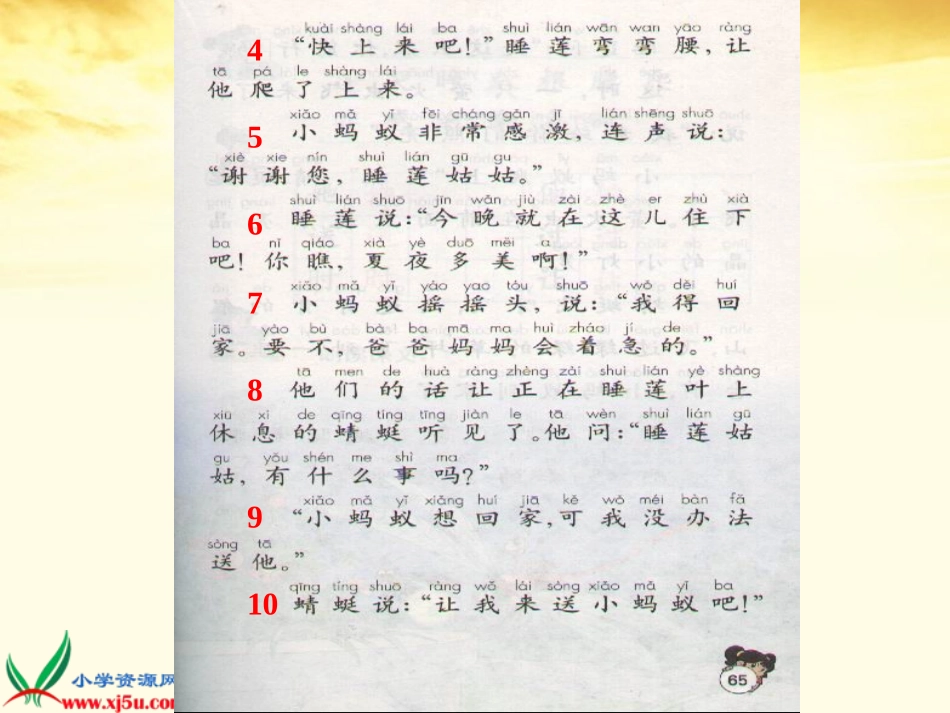 kuài shàng lái ba shuì lián wān wan yāo ràng
4 “快上来吧！”睡莲弯弯腰，让
tā pá le shàng lái
他爬了上来。
xiǎo mǎ yǐ fēi cháng gǎn jī lián shēng shuō
5 小蚂蚁非常感激，连声说：
xiè xie nín shuì lián gū gu
“谢谢您，睡莲姑姑。”
shuì lián shuō jīn wǎn jiù zài zhè er zhù xià
6 睡莲说：“今晚就在这儿住下
ba nǐ qiáo xià yè duō měi a
吧！你瞧，夏夜多美啊！”
xiǎo mǎ yǐ yáo yao tóu shuō wǒ děi huí
7 小蚂蚁摇摇头，说：“我得回
jiā yào bù bà ba mā ma huì zháo jí de
家。要不，爸爸妈妈会着急的。”
tā men de huà ràng zhèng zài shuì lián yè shàng
8 他们的话让正在睡莲叶上
xiū xi de qīng tíng tīng jiàn le tā wèn shuì lián gū
休息的蜻蜓听见了。他问：“睡莲姑
gu yǒu shén me shì ma
姑，有什么事吗？”
xiǎo mǎ yǐ xiǎng huí jiā kě wǒ méi bàn fǎ
9 “小蚂蚁想回家，可我没办法
sòng tā
送他。”
qīng tíng shuō ràng wǒ lái sòng xiǎo mǎ yǐ ba
10 蜻蜓说：“让我来送小蚂蚁吧！”
65
小学资源网
www.xj5u.com